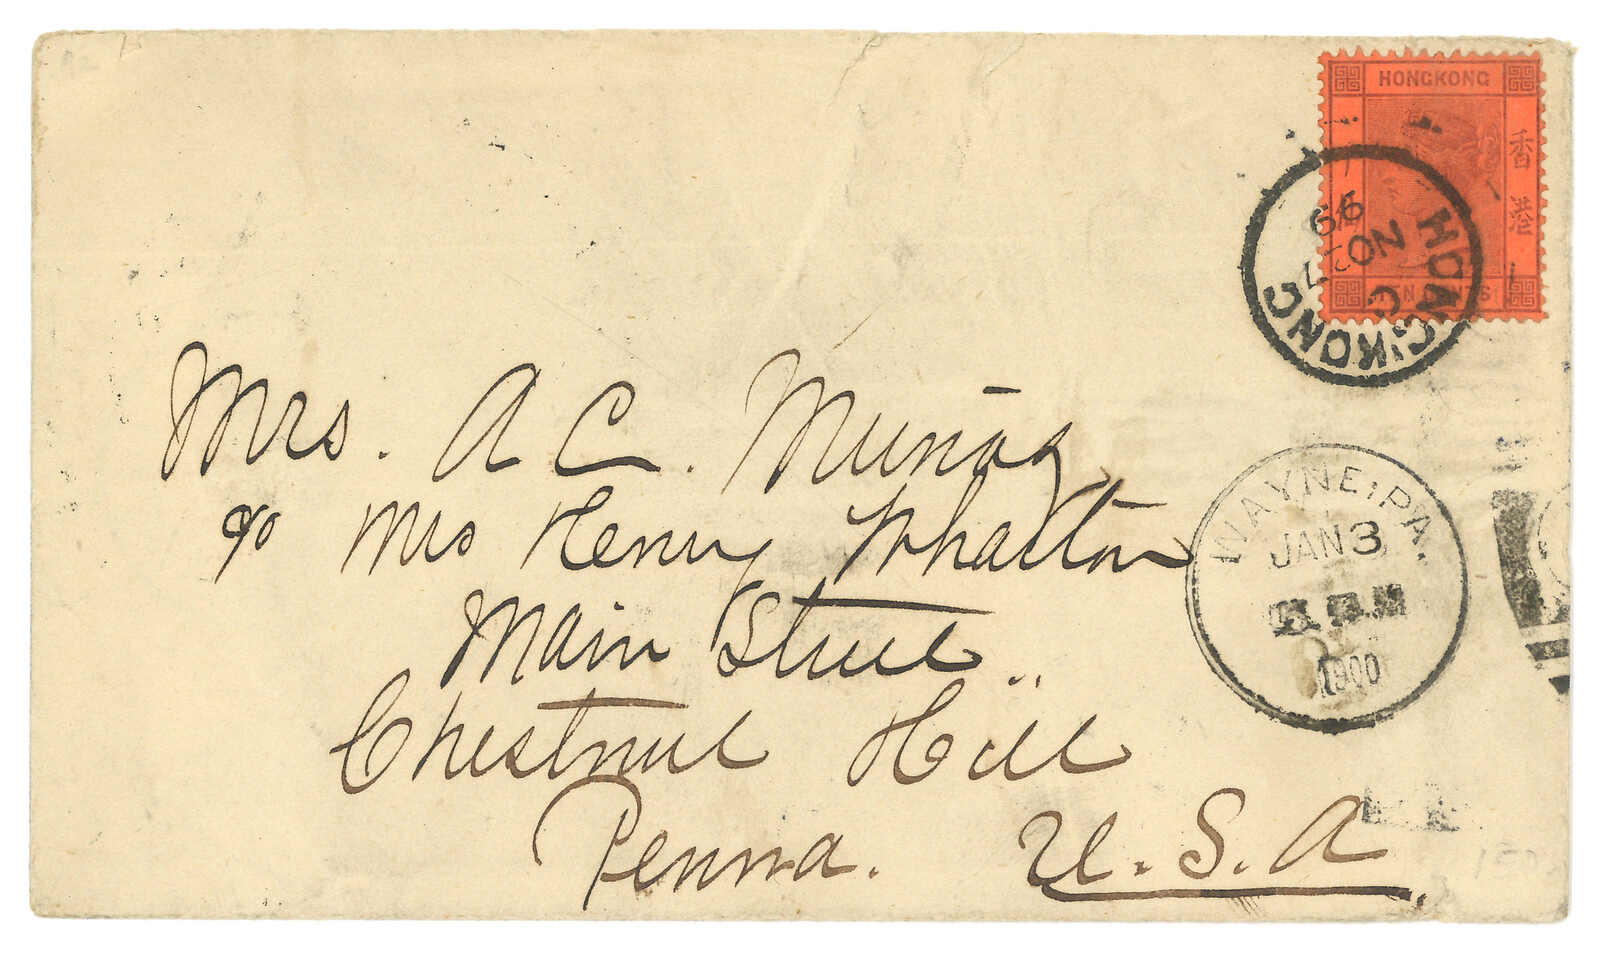 HONGKONG
香港
TEN CENTS
HONG·KONG
C
NO 27
99
Mrs. A C. Muñoz
c/o Mrs Henry Wharton
Main Street..
Chestnut Hill
Penna. U.S.A.
WAYNE, PA.
JAN 3
1900